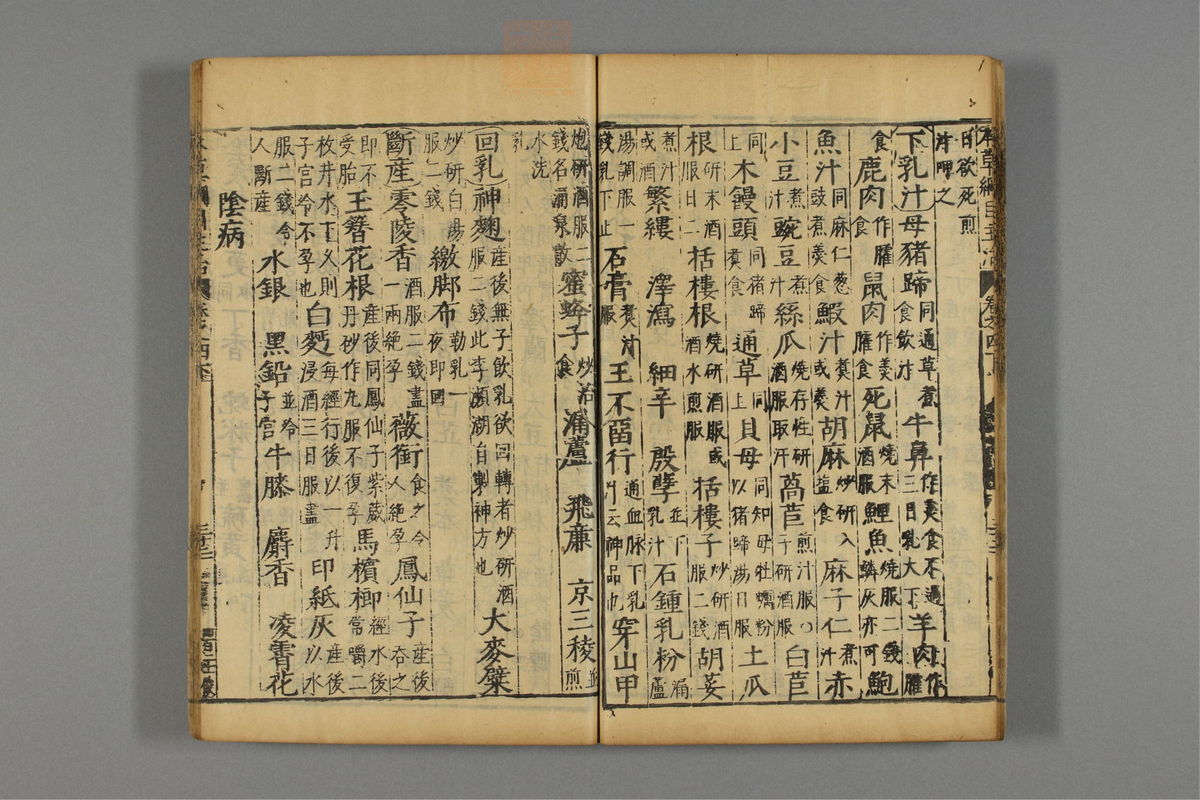 日欲死煎
汁呷之
下乳汁母豬蹄同通草煮食飲汁牛鼻作羹食不過三日乳大下羊肉作臛
食鹿肉作臛食鼠肉作羹臛食死鼠燒末酒服鯉魚燒服二錢鱗灰亦可鮑
魚汁同麻仁葱豉煮羹食鰕汁煮汁或羹胡麻炒研入塩食麻子仁煮汁赤
小豆煮汁豌豆煮汁絲瓜燒存性研酒服取汗萵苣煎汁服○子研酒服白苣
同上木饅頭同猪蹄煮食通草同上貝母同知母牡蠣粉以猪蹄湯日服土瓜
根研末酒服日二栝樓根燒研酒服或酒水煎服栝樓子炒研酒服二錢胡荽
煮汁或酒繁縷 澤瀉 細辛 殷孽並下乳汁石鍾乳粉漏蘆
湯調服一錢乳下止石膏煮汁服王不留行通血脉下乳汁云神品巾穿山甲
炮研酒服二錢名涌泉散蜜蜂子炒治食漏蘆 飛廉 京三稜並煎
水洗
乳
回乳神麴産後無子飲乳欲回轉者炒研酒服二錢此李瀕湖自製神方也大麥櫱
炒研白湯服二錢繳脚布勒乳一夜即回
斷産零陵香酒服二錢盡一兩絕孕薇銜食之令人絕孕鳳仙子産後吞之
即不受胎玉簪花根産後同鳳仙子紫葳丹砂作丸服不復孕馬檳榔經水後常嚼二
枚井水下久則子宮冷不孕也白麪每經行後以一升浸酒三日服盡印紙灰産後以水
服二錢令人斷産水銀 黑鉛並冷子宮牛膝 麝香 凌霄花
陰病